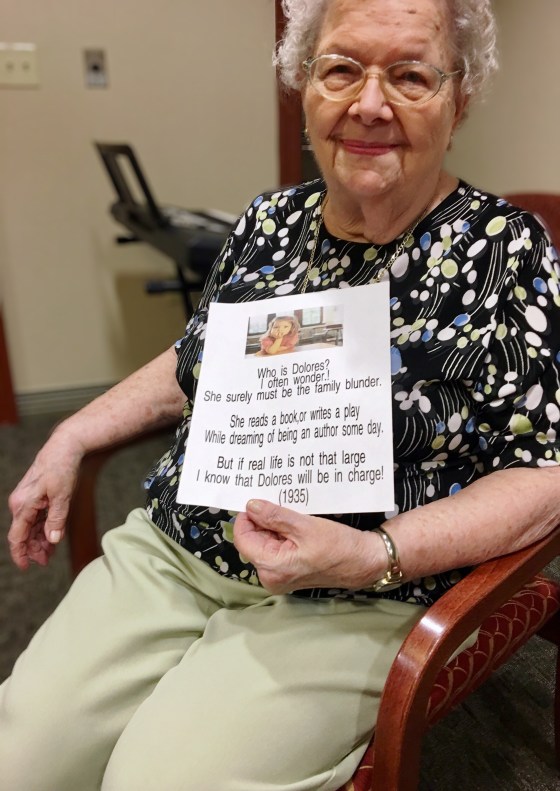 Who is Dolores?
I often wonder.!
She surely must be the family blunder.
She reads a book,or writes a play
While dreaming of being an author some day.
But if real life is not that large
I know that Dolores will be in charge!
(1935)